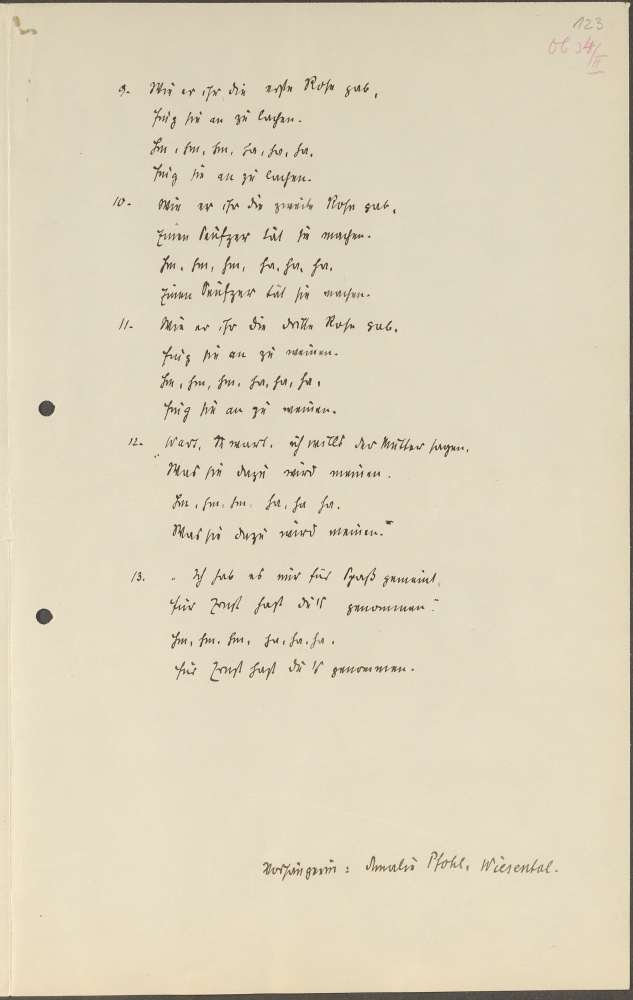 123
Ob 34/II
9. Wie er ihr die erste Rose gab,
fing sie an zu lachen.
hm, hm, hm, ha, ha, ha.
fing sie an zu lachen.
10. Wie er ihr die zweite Rose gab,
Einen Seufzer tät sie machen.
hm, hm, hm, ha, ha, ha.
Einen Seufzer tät sie machen.
11. Wie er ihr die dritte Rose gab,
fing sie an zu weinen.
hm, hm, hm, ha, ha, ha,
fing sie an zu weinen.
12. „Wart, wart, ich wills der Mutter sagen,
Was sie dazu wird meinen.
hm, hm, hm, ha, ha ha.
Was sie dazu wird meinen."
13. „Ich hab es nur für Spaß gemeint,
für Ernst hast du's genommen."
hm, hm, hm, ha, ha, ha.
für Ernst hast du's genommen.
Vorsängerin: Amalie Pfohl, Wiesental.